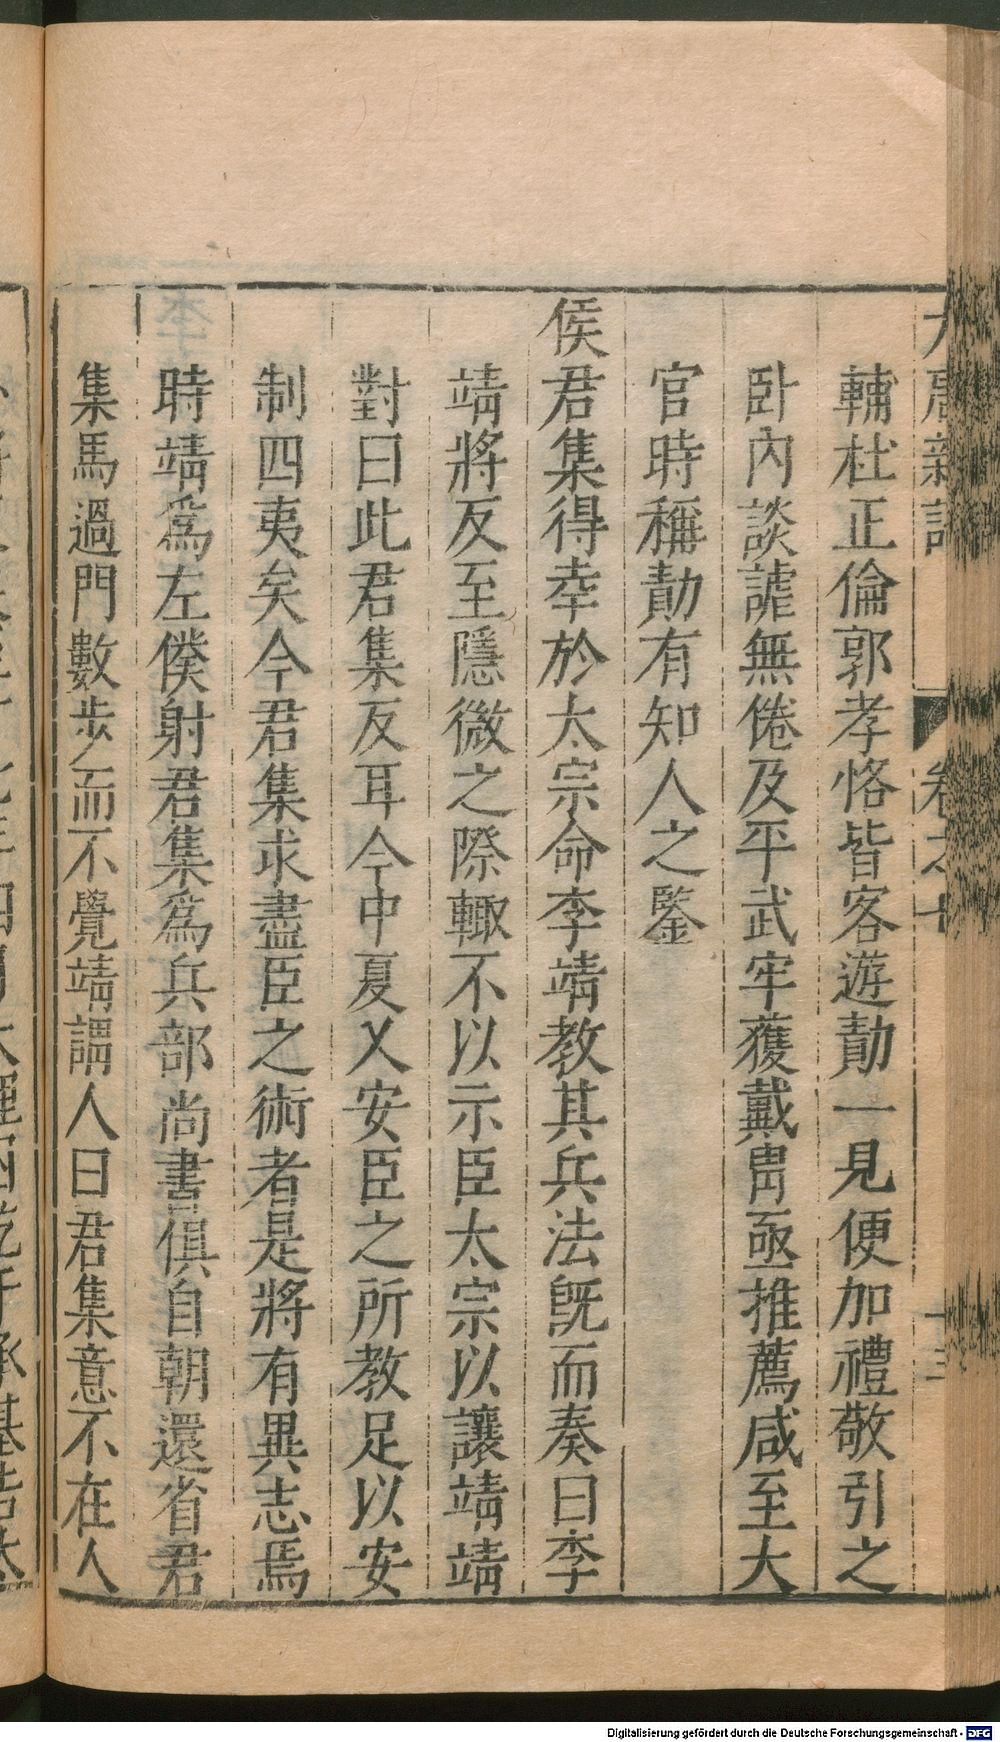 輔杜正倫郭孝恪皆客遊勣一見便加禮敬引之
卧內談謔無倦及平武牢獲戴胄亟推薦咸至大
官時稱勣有知人之鑒
侯君集得幸於太宗命李靖教其兵法旣而奏曰李
靖將反至隱微之際輙不以示臣太宗以讓靖靖
對曰此君集反耳今中夏乂安臣之所教足以安
制四夷矣今君集求盡臣之術者是將有異志焉
時靖爲左僕射君集爲兵部尚書俱自朝還省君
集馬過門數步而不覺靖謂人曰君集意不在人
Digitalisierung gefördert durch die Deutsche Forschungsgemeinschaft - DFG